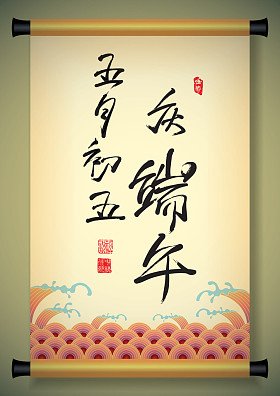 庆端午
五月初五